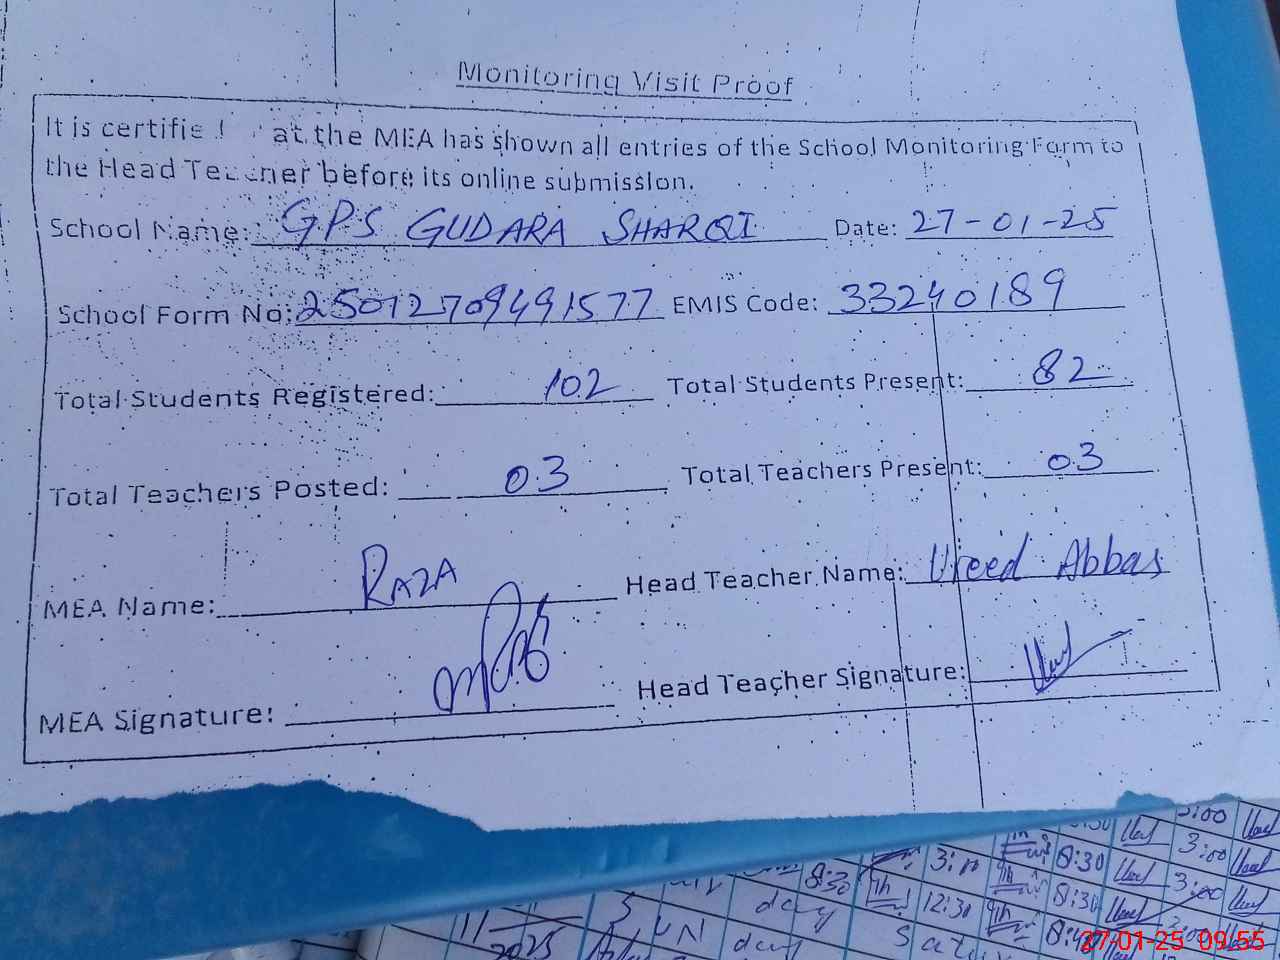 Monitoring Visit Proof
It is certifie at the MEA has shown all entries of the School Monitoring Form to
the Head Teacher before its online submission.
School Name: GPS GUDARA SHARQI Date: 27-01-25
School Form No: 25012709491577 EMIS Code: 33240189
Total Students Registered: 102 Total Students Present: 82
Total Teachers Posted: 03 Total Teachers Present: 03
MEA Name: RAZA Head Teacher Name: Abbas
MEA Signature: Head Teacher Signature:
3:00
8:30 3:00
8:30 3:10 8:30 3:00
day 12:30
11 2025 day
27-01-25 09:55